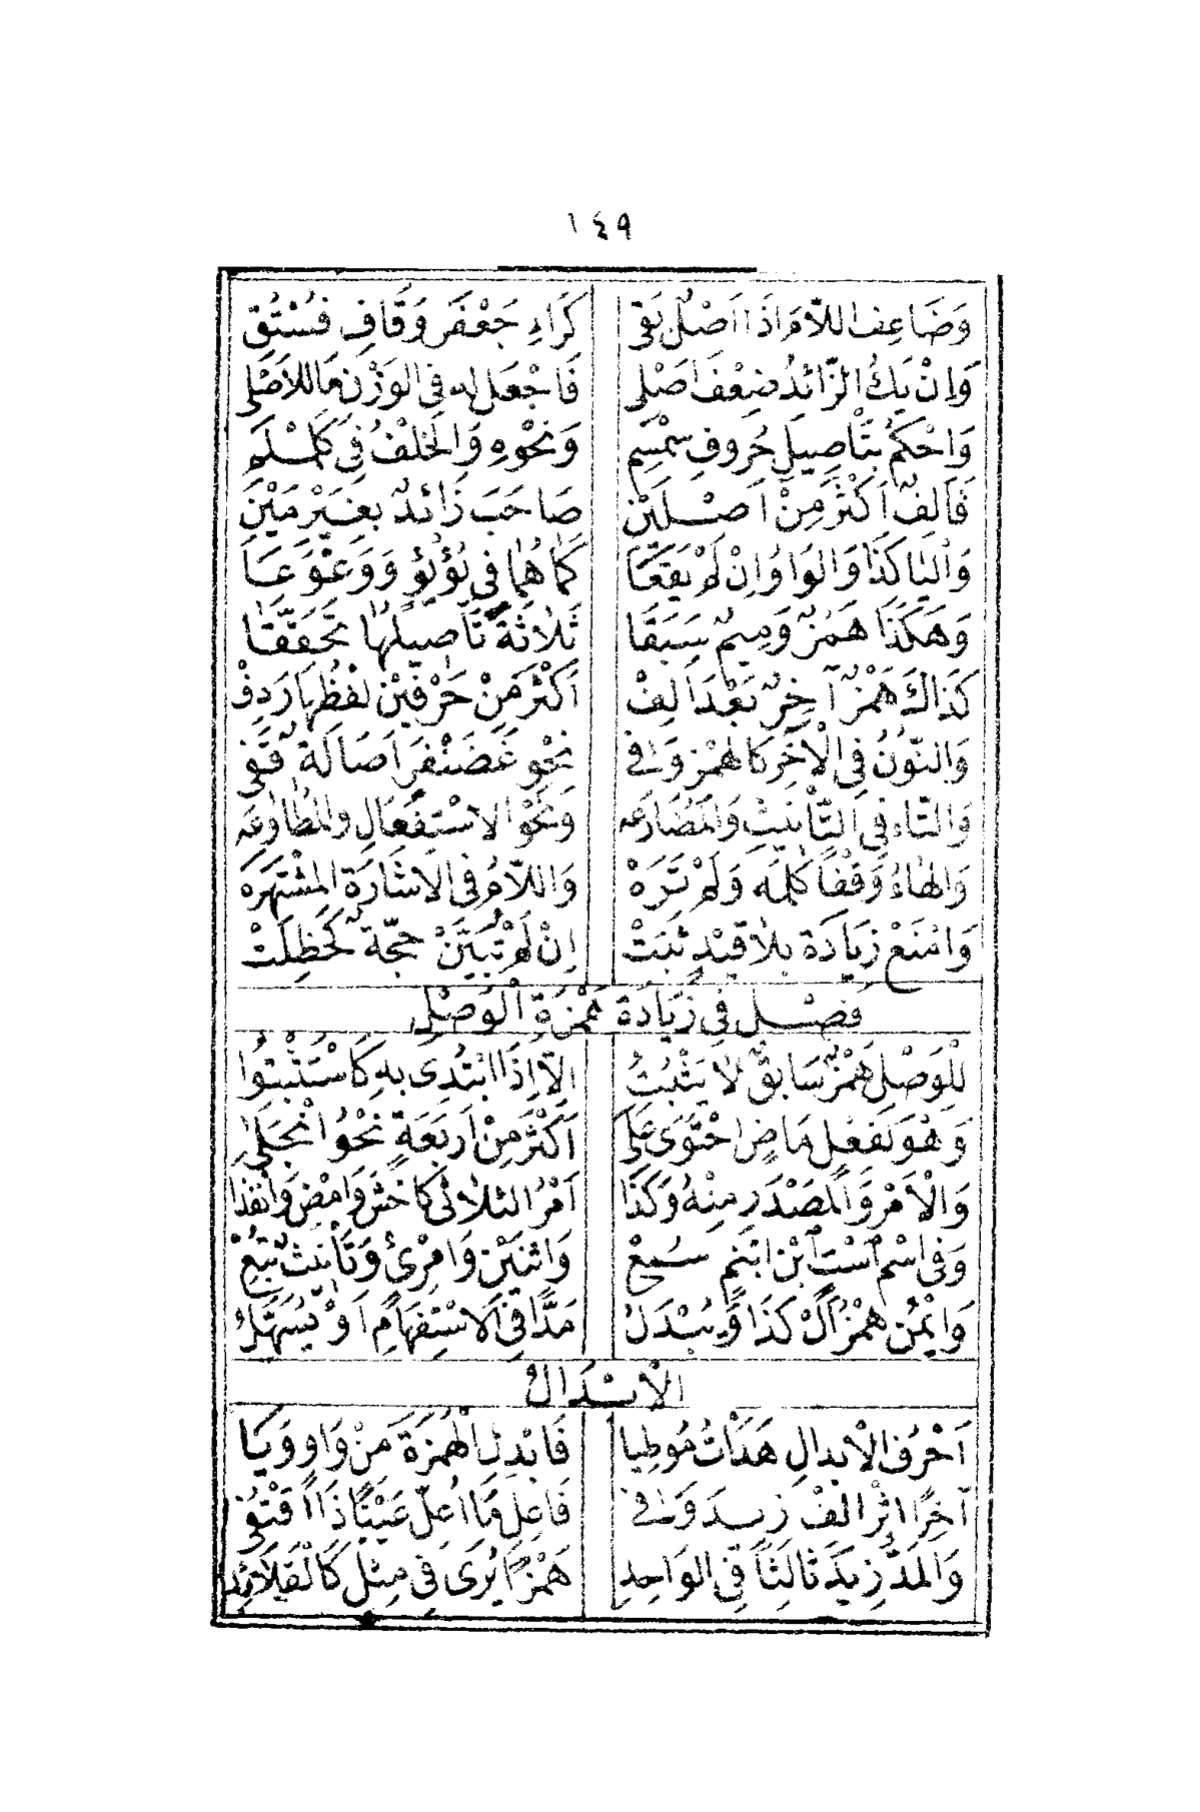 ١٤٩
وَضَاعِفِ اللَّامَ إِذَا أَصْلٌ بَقِي كَرَاءِ جَعْفَرٍ وَقَافِ فُسْتُقِ
وَإِنْ يَكُ الزَّائِدُ ضِعْفَ أَصْلِي فَاجْعَلْ لَهُ فِي الوَزْنِ مَا لِلأَصْلِ
وَاحْكُمْ بِتَأْصِيلِ حُرُوفِ سِمْسِمِ وَنَحْوِهِ وَالخُلْفُ فِي كَلَمْلَمِ
فَأَلِفٌ أَكْثَرَ مِنْ أَصْلَيْنِ صَاحَبَ زَائِدٌ بِغَيْرِ مَيْنِ
وَاليَا كَذَا وَالوَاوُ إِنْ لَمْ يَقَعَا كَمَا هُمَا فِي يُؤْيُؤٍ وَوَعْوَعَا
وَهَكَذَا هَمْزٌ وَمِيمٌ سَبَقَا ثَلاثَةً تَأْصِيلُهَا تَحَقَّقَا
كَذَاكَ هَمْزٌ آخِرٌ بَعْدَ أَلِفْ أَكْثَرَ مِنْ حَرْفَيْنِ لَفْظُهَا رَدِفْ
وَالنُّونُ فِي الْآخِرِ كَالهَمْزِ وَفِي نَحْوِ غَضَنْفَرٍ أَصَالَةً قُفِي
وَالتَّاءُ فِي التَّأْنِيثِ وَالمُضَارَعَه وَنَحْوِ الاسْتِفْعَالِ وَالمُطَاوَعَه
وَالهَاءُ وَقْفًا كَلِمَه وَلَمْ تَرَهْ وَاللَّامُ فِي الإِشَارَةِ المُشْتَهِرَهْ
وَامْنَعْ زِيَادَةً بِلا قَيْدٍ ثَبَتْ إِنْ لَمْ تُبَيَّنْ حُجَّةٌ كَحَظِلَتْ
فَصْلٌ فِي زِيَادَةِ هَمْزَةِ الْوَصْلِ
لِلْوَصْلِ هَمْزٌ سَابِقٌ لَا يَثْبُتُ إِلَّا إِذَا ابْتُدِي بِهِ كَاسْتَثْبِتُوا
وَهْوَ لِفِعْلٍ مَاضٍ احْتَوَى عَلَى أَكْثَرَ مِنْ أَرْبَعَةٍ نَحْوُ انْجَلَى
وَالْأَمْرِ وَالمَصْدَرِ مِنْهُ وَكَذَا أَمْرُ الثُّلَاثِي كَاخْشَ وَامْضِ وَانْفُذَا
وَفِي اسْمٍ اسْتٍ ابْنٍ ابْنِمٍ سُمِعْ وَاثْنَيْنِ وَامْرِئٍ وَتَأْنِيثٍ تَبِعْ
وَايْمُنُ هَمْزُ أَلْ كَذَا وَيُبْدَلُ مَدًّا فِي الاسْتِفْهَامِ أَوْ يُسَهَّلُ
الْإِبْدَالُ
أَحْرُفُ الْإِبْدَالِ هَدَأْتُ مُوطِيَا فَأَبْدِلِ الْهَمْزَةَ مِنْ وَاوٍ وَيَا
آخِرًا اثْرَ أَلِفٍ زِيدَ وَفِي فَاعِلِ مَا أُعِلَّ عَيْنًا ذَا اقْتُفِي
وَالمَدُّ زِيدَ ثَالِثًا فِي الوَاحِدِ هَمْزًا يُرَى فِي مِثْلِ كَالْقَلَائِدِ